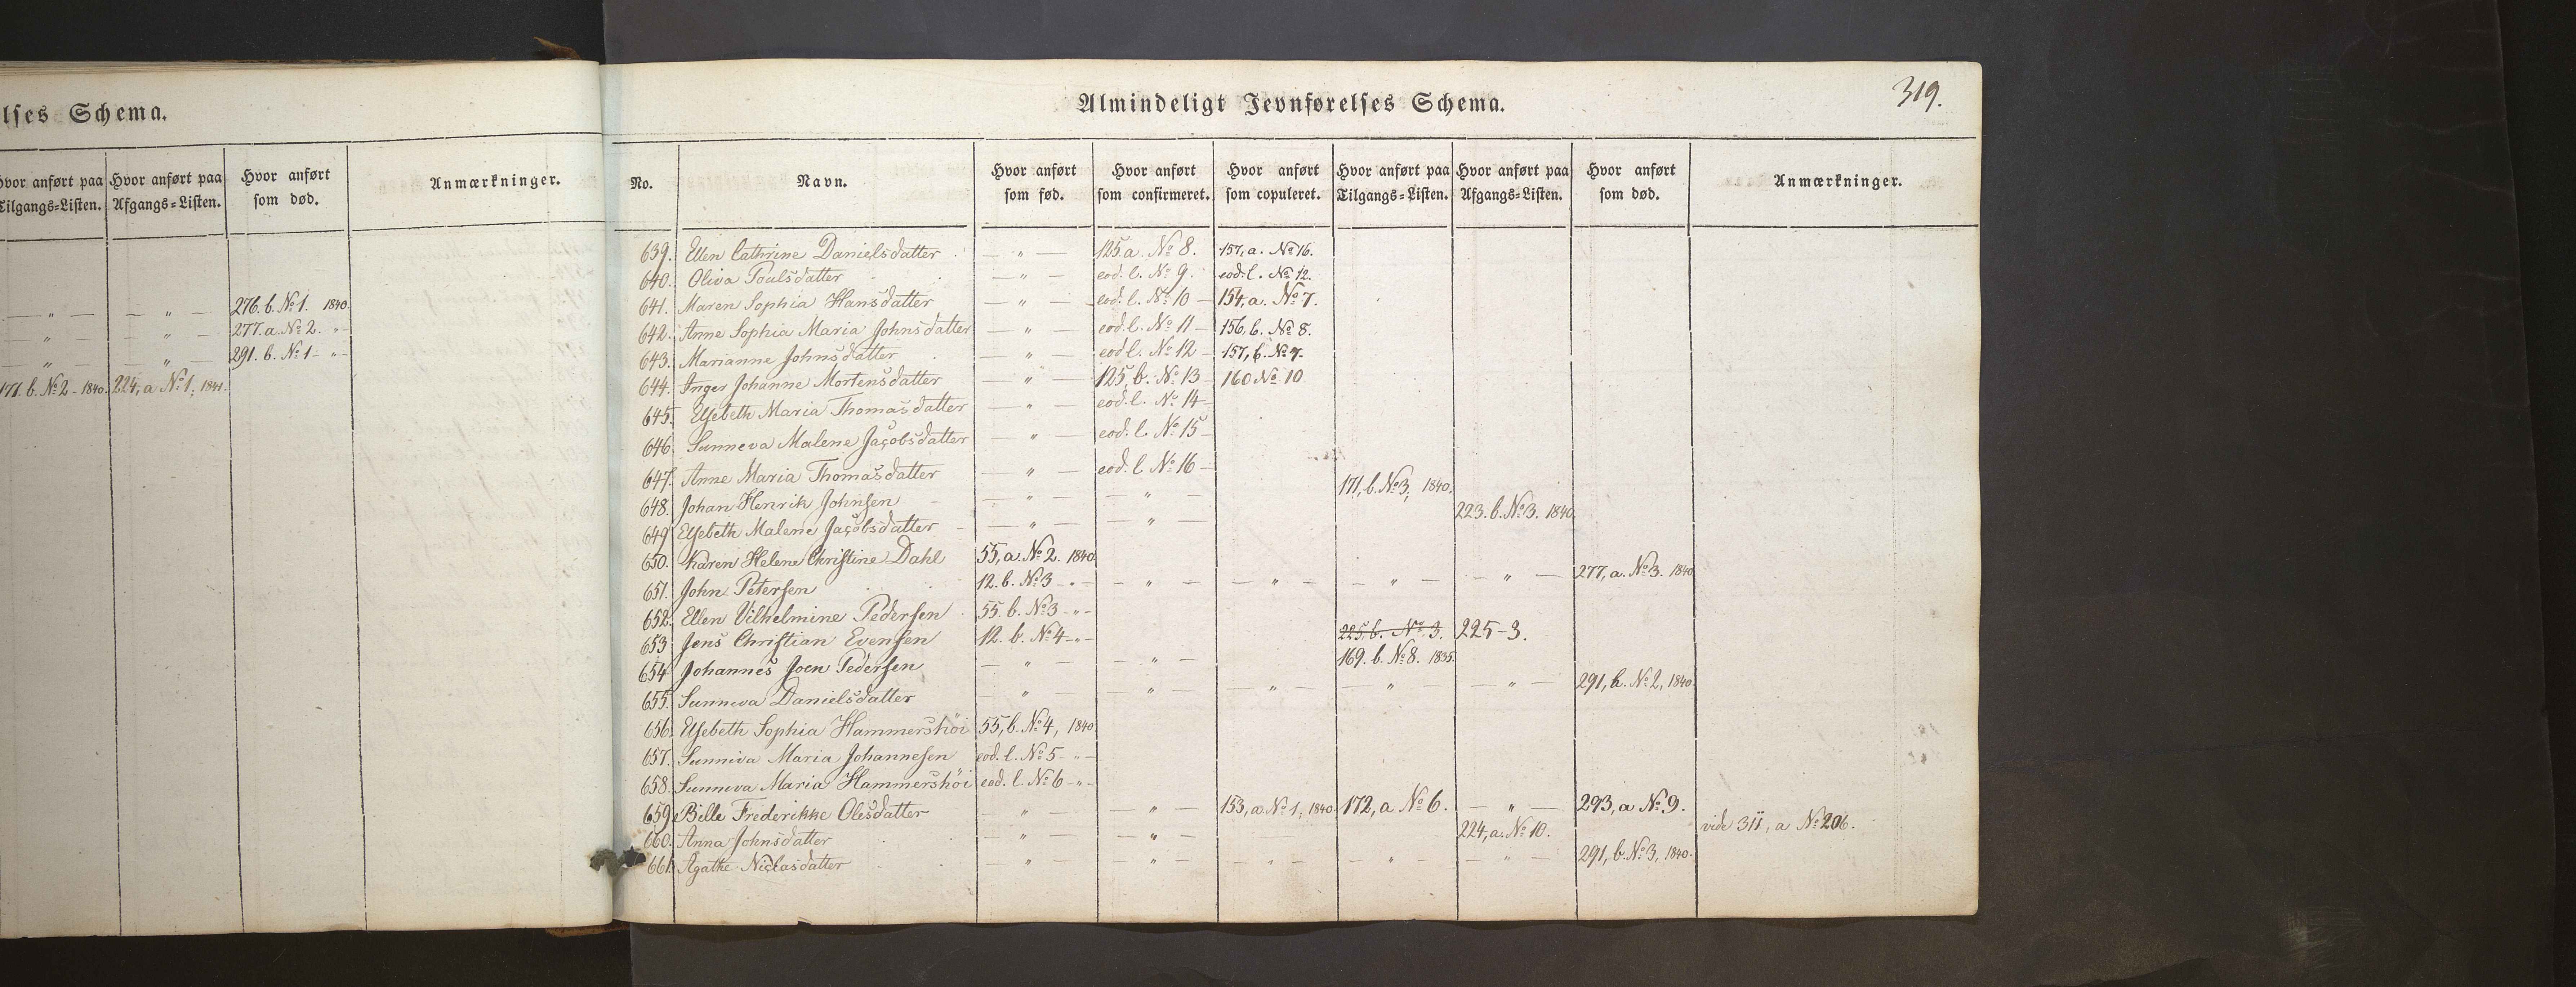 lses Schema.
Hvor anført paa Tilgangs-Listen. Hvor anført paa Afgangs-Listen. Hvor anført som død. Anmærkninger.
— " — — " — 276. b. No 1. 1840.
— " — — " — 277. a. No 2. - " -
— " — — " — 291. b. No 1 - " -
171. b. No 2 - 1840. 224, a No 1, 1841.
319.
Almindeligt Jevnførelses Schema.
No. Navn. Hvor anført som fød. Hvor anført som confirmeret. Hvor anført som copuleret. Hvor anført paa Tilgangs-Listen. Hvor anført paa Afgangs-Listen. Hvor anført som død. Anmærkninger.
639. Ellen Cathrine Danielsdatter — " — 125. a. No 8. 157, a. No 16.
640. Oliva Poulsdatter — " — eod. l. No 9. eod. l. No 12.
641. Maren Sophia Hansdatter — " — eod. l. No 10 — 154, a. No 7.
642. Anne Sophia Maria Johnsdatter — " — eod. l. No 11 — 156, b. No 8.
643. Marianne Johnsdatter — " — eod l. No 12 — 157, b. No 7.
644. Inger Johanne Mortensdatter — " — 125, b. No 13 — 160 No 10
645. Elsebeth Maria Thomasdatter — " — eod. l. No 14 —
646. Sunneva Malene Jacobsdatter — " — eod. l. No 15 —
647. Anne Maria Thomasdatter — " — eod. l. No 16 —
648. Johan Henrik Johnsen — " — — " — 171, b. No 3, 1840.
649. Elsebeth Malene Jacobsdatter — " — — " — 223. b. No 3. 1840.
650. Karen Helene Christine Dahl 55, a. No 2. 1840
651. John Petersen 12. b. No 3 - " - — " — — " — — " — — " — 277, a. No 3. 1840
652. Ellen Vilhelmine Pedersen 55. b. No 3 - " -
653. Jens Christian Evensen 12. b. No 4 - " - 225, b. No 3. 225-3.
654. Johannes Joen Pedersen — " — — " — 169. b. No 8. 1835.
655. Sunneva Danielsdatter — " — — " — — " — — " — — " — 291, b. No 2, 1840.
656. Elsebeth Sophia Hammershöi 55, b. No 4, 1840
657. Sunniva Maria Johannesen eod. l. No 5 - " -
658. Sunneva Maria Hammershöi eod. l. No 6 - " -
659. Bille Frederikke Olesdatter — " — — " — 153, a. No 1, 1840. 172, a No 6. — " — 293, a No 9.
660. Anna Johnsdatter — " — — " — 224, a. No 10. vide 311, a No 206.
661. Agathe Niclasdatter — " — — " — — " — — " — — " — 291, b. No 3, 1840.